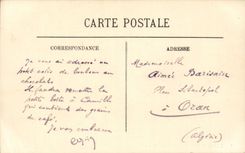 CARTE POSTALE
CORRESPONDANCE
ADRESSE
Je vous ai adressé un
petit colis de bonbons au
chocolat
Il faudra remettre la
petite boîte à Camille
qui contient des grains
de café
Je vous embrasse
Mademoiselle
Aimée
Place Sébastopol
à Oran
(Algérie)